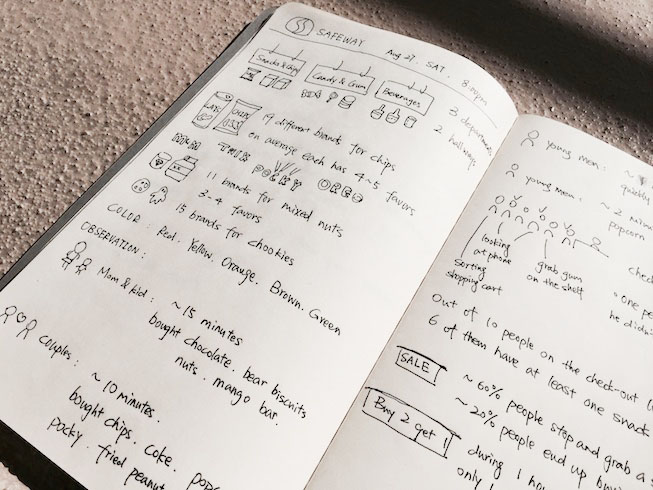 SAFEWAY
Aug 27. SAT. 8:00pm
Snacks & Chips
Candy & Gum
Beverages
3 departments
2 hallways
19 different brands for chips
on average each has 4~5 favors
TWIX
POCKY
OREO
11 brands for mixed nuts
3~4 favors
15 brands for chookies
COLOR: Red. Yellow. Orange. Brown. Green
OBSERVATION:
Mom & kid: ~15 minutes
bought chocolate. bear biscuits
nuts. mango bar.
couples: ~10 minutes.
bought chips. coke. pop
pocky. fried peanut
young man: ~
quickly
young mom: ~2 minu
popcorn
looking
at phone
sorting
shopping cart
grab gum
on the shelf
check
one pe
he didn
Out of 10 people on the check-out l
6 of them have at least one snack
SALE
~60% people stop and grab a s
~20% people end up buyin
Buy 2 get 1
during 1 hou
only